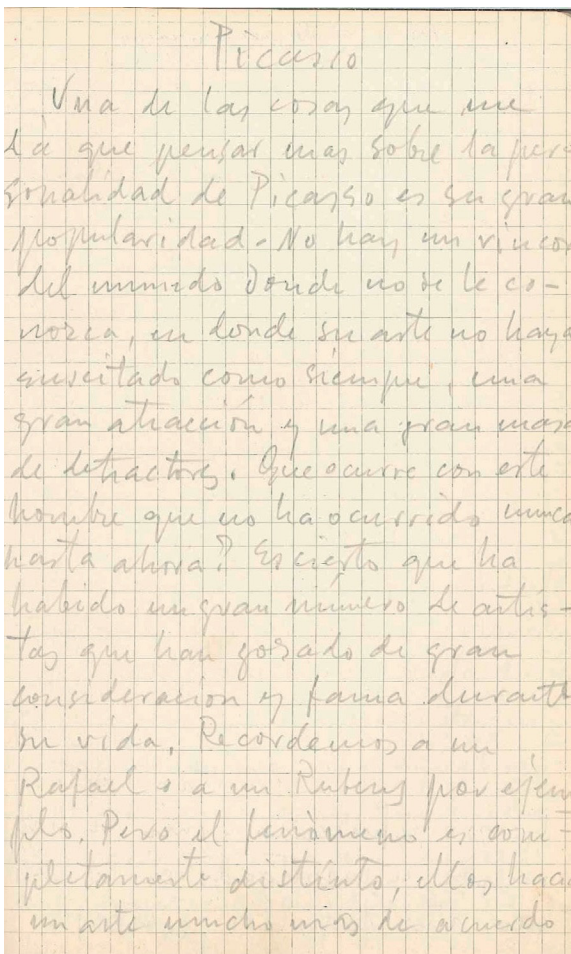 Picasso
Una de las cosas que me
da que pensar mas sobre la per
sonalidad de Picasso es su gran
popularidad. No hay un rincon
del mundo donde no se le co-
nozca, en donde su arte no haya
suscitado como siempre, una
gran atracción y una gran masa
de detractores. Que ocurre con este
hombre que no ha ocurrido nunca
hasta ahora? Es cierto que ha
habido un gran número de artis-
tas que han gozado de gran
consideracion y fama durante
su vida. Recordemos a un
Rafael o a un Rubens por ejem
plo. Pero el fenòmeno es com-
pletamente distinto, ellos hacian
un arte mucho más de acuerdo